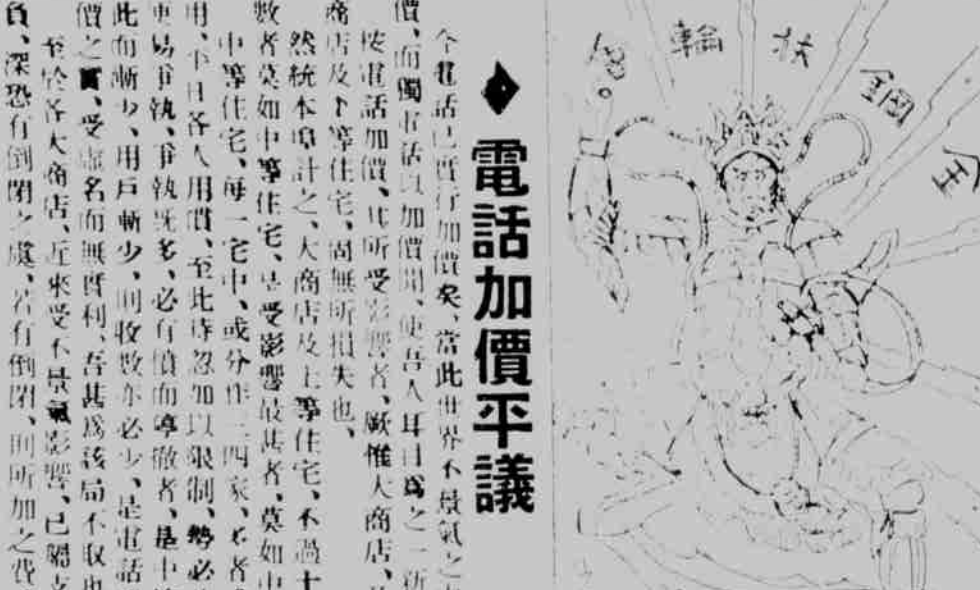 全國扶輪
◆電話加價平議
今電話已實行加價矣、當此世界不景氣之
價、而獨電話以加價聞、使吾人耳目爲之一新
按電話加價、其所受影響者、厥惟大商店、
商店及下等住宅、固無所損失也、
然統本埠計之、大商店及上等住宅、不過十
數者莫如中等住宅、是受影響最甚者、莫如中
中等住宅、每一宅中、或分住三四家、多者
用、平日各人用慣、至此時忽加以限制、勢必
更易爭執、爭執旣多、必有憤而導徹者、是中
此而漸少、用戶漸少、則收數亦必少、是電話
價之實、受虛名而無實利、吾甚爲該局不取也
至於各大商店、近來受不景氣影響、已屬支
負、深恐有倒閉之處、若有倒閉、則所加之費